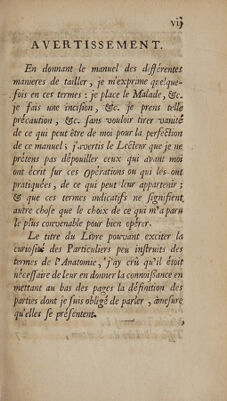 vij
AVERTISSEMENT.
En donnant le manuel des différentes
manieres de tailler, je m'exprime quelque-
fois en ces termes : je place le Malade, &c.
je fais une incision, &c. je prens telle
précaution, &c. sans vouloir tirer vanité
de ce qui peut être de moi pour la perfection
de ce manuel ; j'avertis le Lecteur que je ne
prétens pas dépouiller ceux qui avant moi
ont écrit sur ces opérations ou qui les ont
pratiquées, de ce qui peut leur appartenir ;
& que ces termes indicatifs ne signifient
autre chose que le choix de ce qui m'a paru
le plus convenable pour bien opérer.
Le titre du Livre pouvant exciter la
curiosité des Particuliers peu instruits des
termes de l'Anatomie, j'ay crû qu'il étoit
nécessaire de leur en donner la connoissance en
mettant au bas des pages la définition des
parties dont je suis obligé de parler , à mesure
qu'elles se présentent.